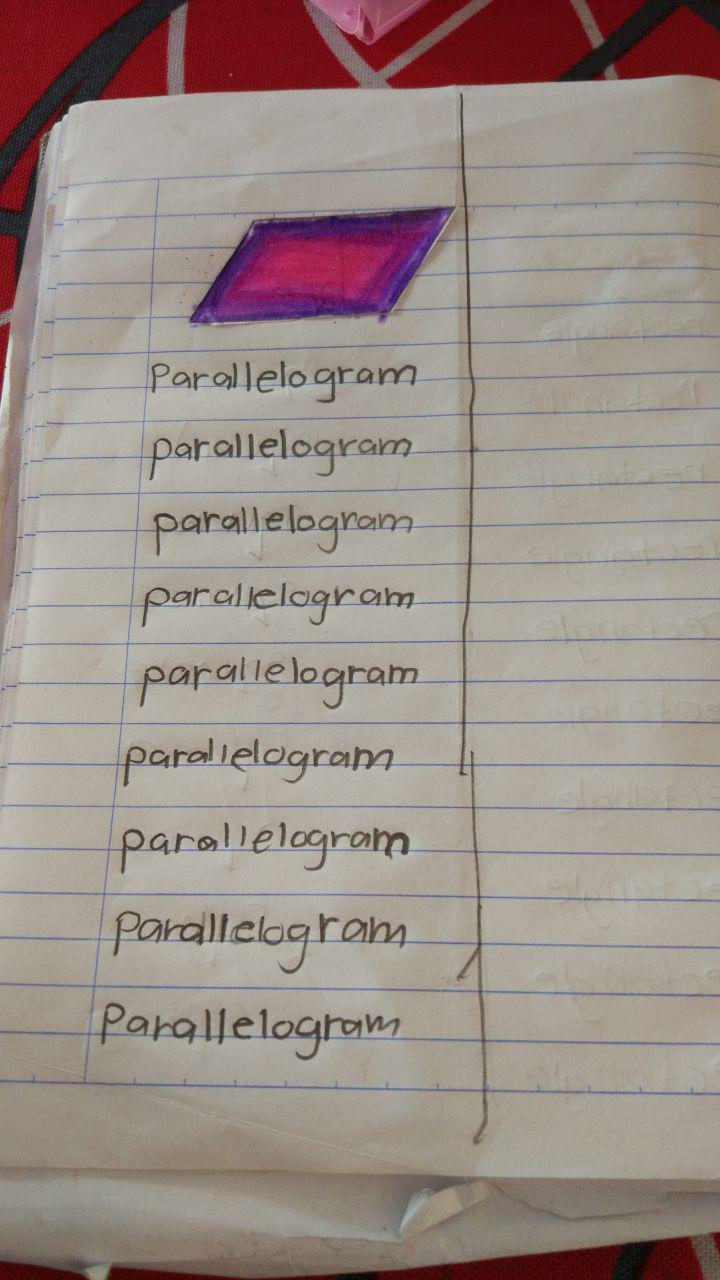 Parallelogram
parallelogram
parallelogram
parallelogram
parallelogram
parallelogram
parallelogram
Parallelogram
Parallelogram